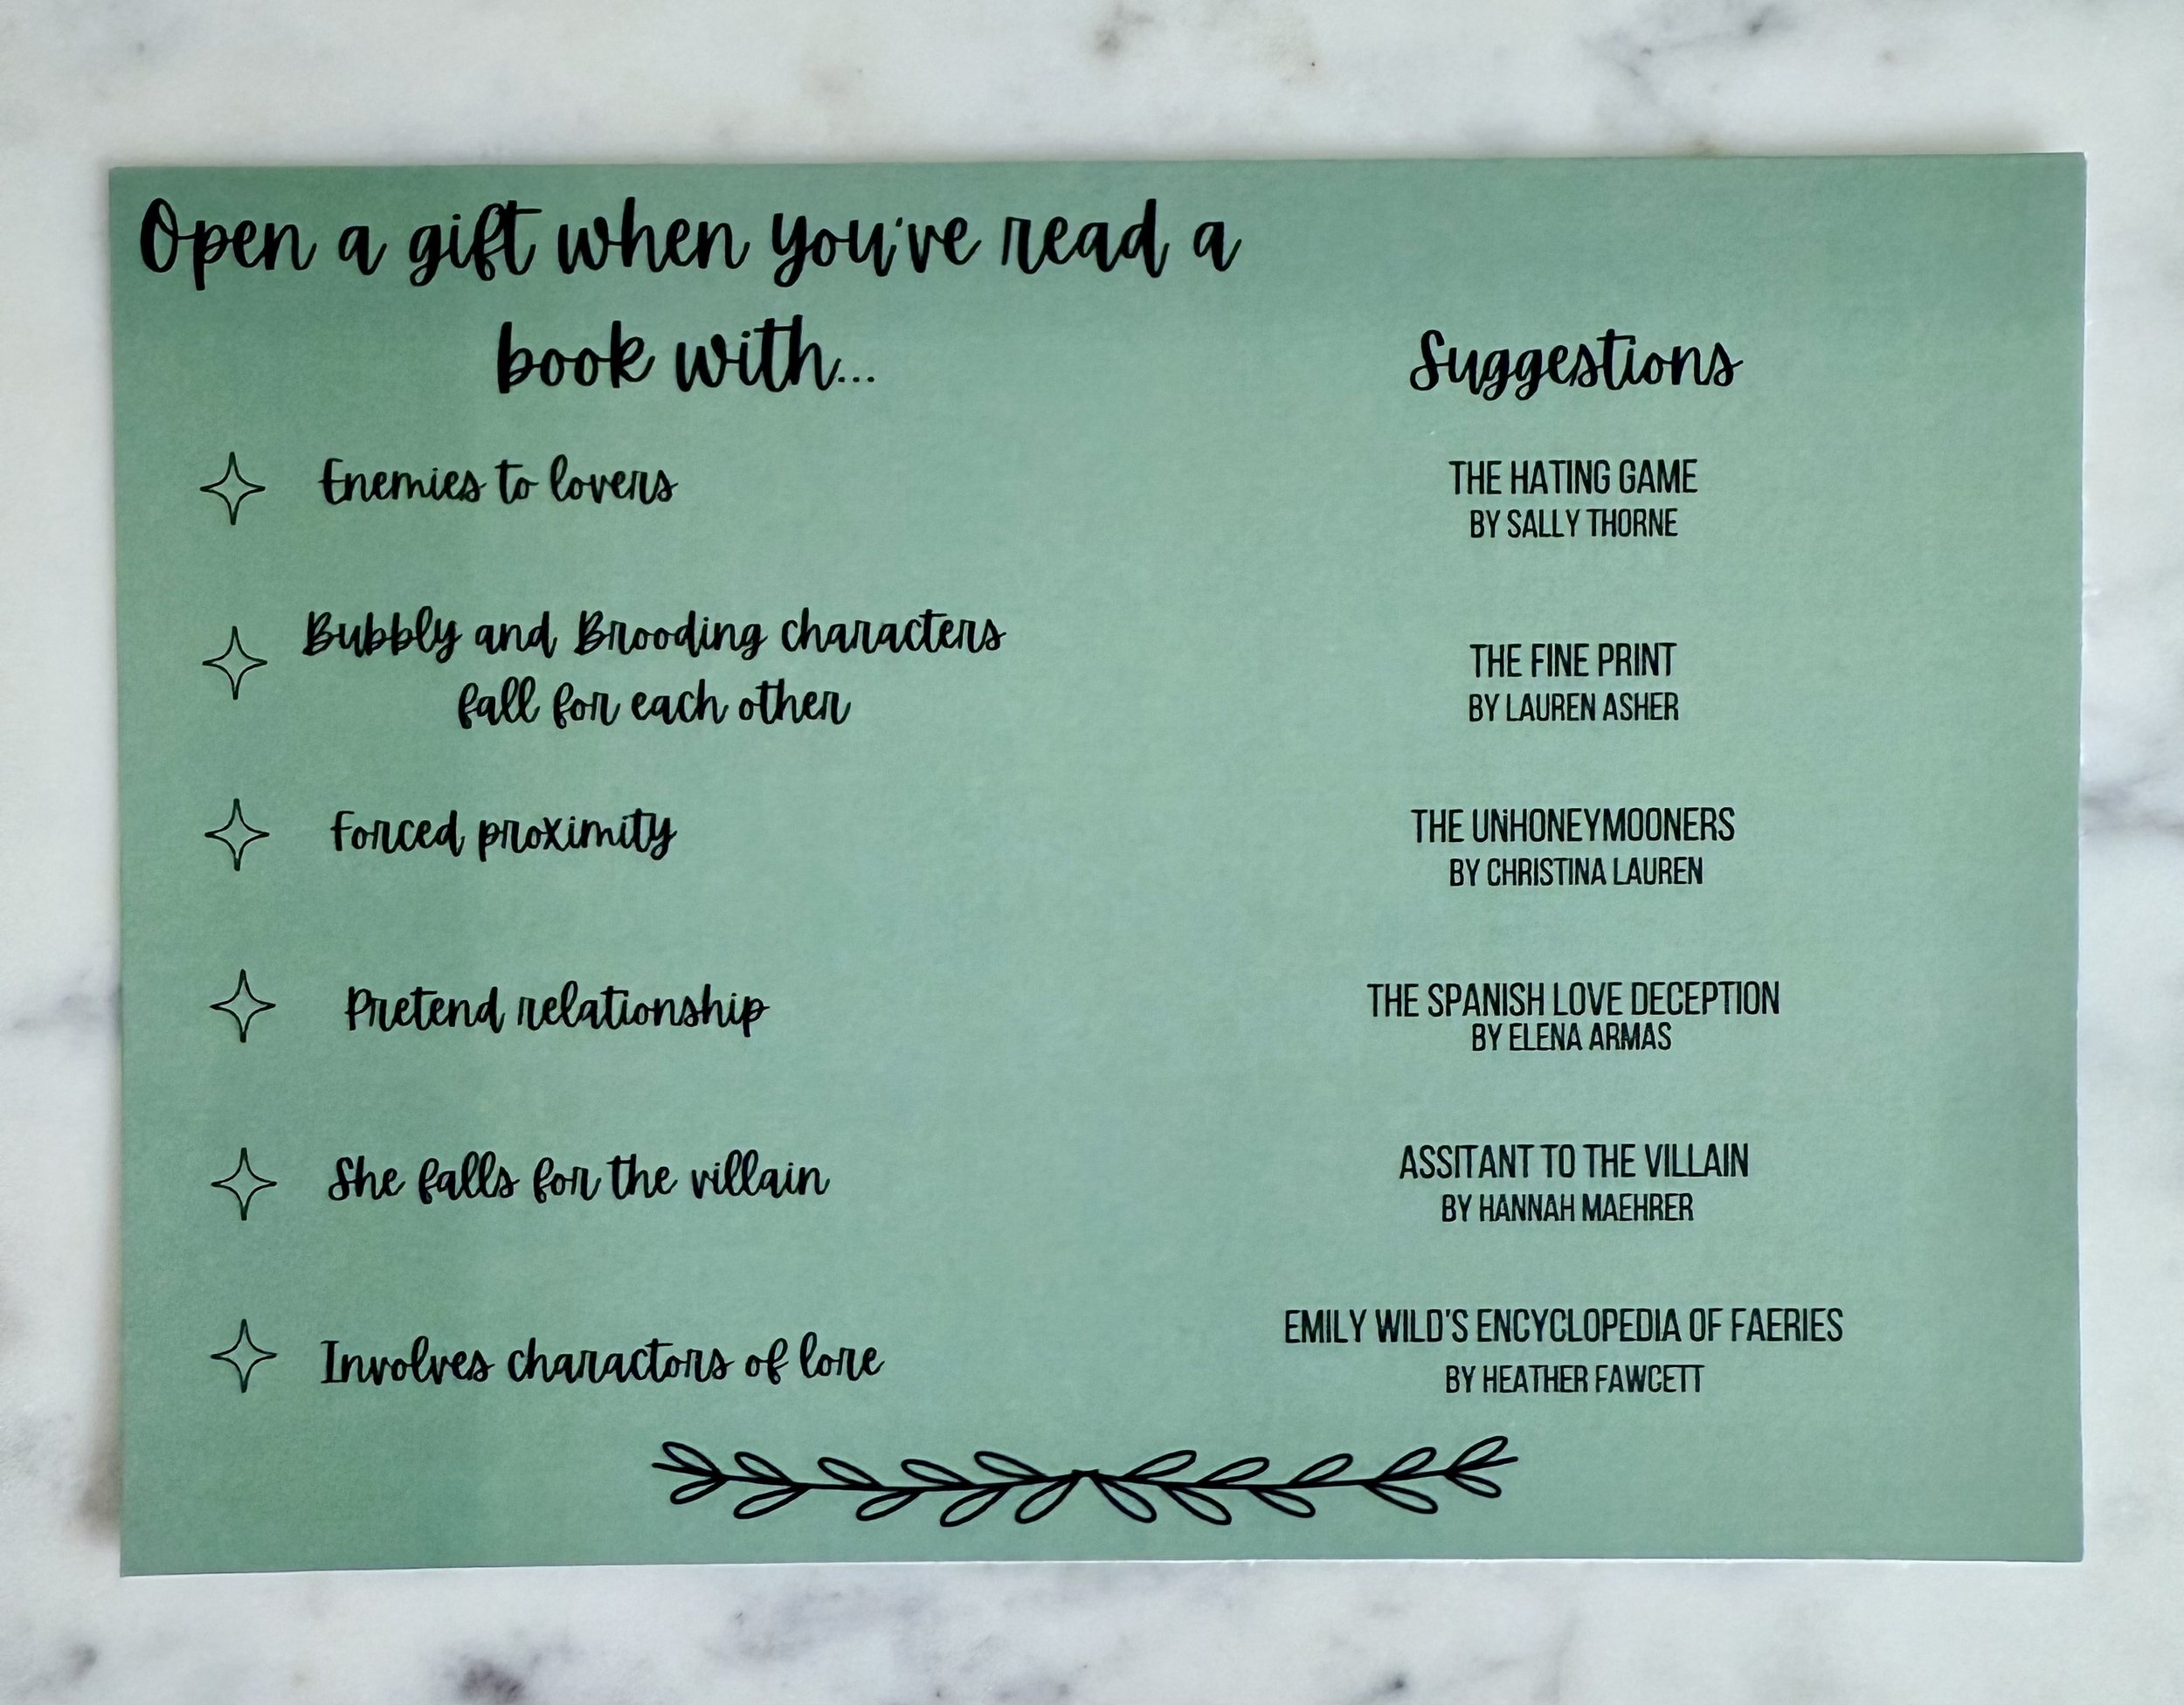 Open a gift when you've read a
book with...
Suggestions
Enemies to lovers
THE HATING GAME
BY SALLY THORNE
Bubbly and Brooding characters
fall for each other
THE FINE PRINT
BY LAUREN ASHER
Forced proximity
THE UNHONEYMOONERS
BY CHRISTINA LAUREN
Pretend relationship
THE SPANISH LOVE DECEPTION
BY ELENA ARMAS
She falls for the villain
ASSITANT TO THE VILLAIN
BY HANNAH MAEHRER
Involves charactors of lore
EMILY WILD'S ENCYCLOPEDIA OF FAERIES
BY HEATHER FAWCETT